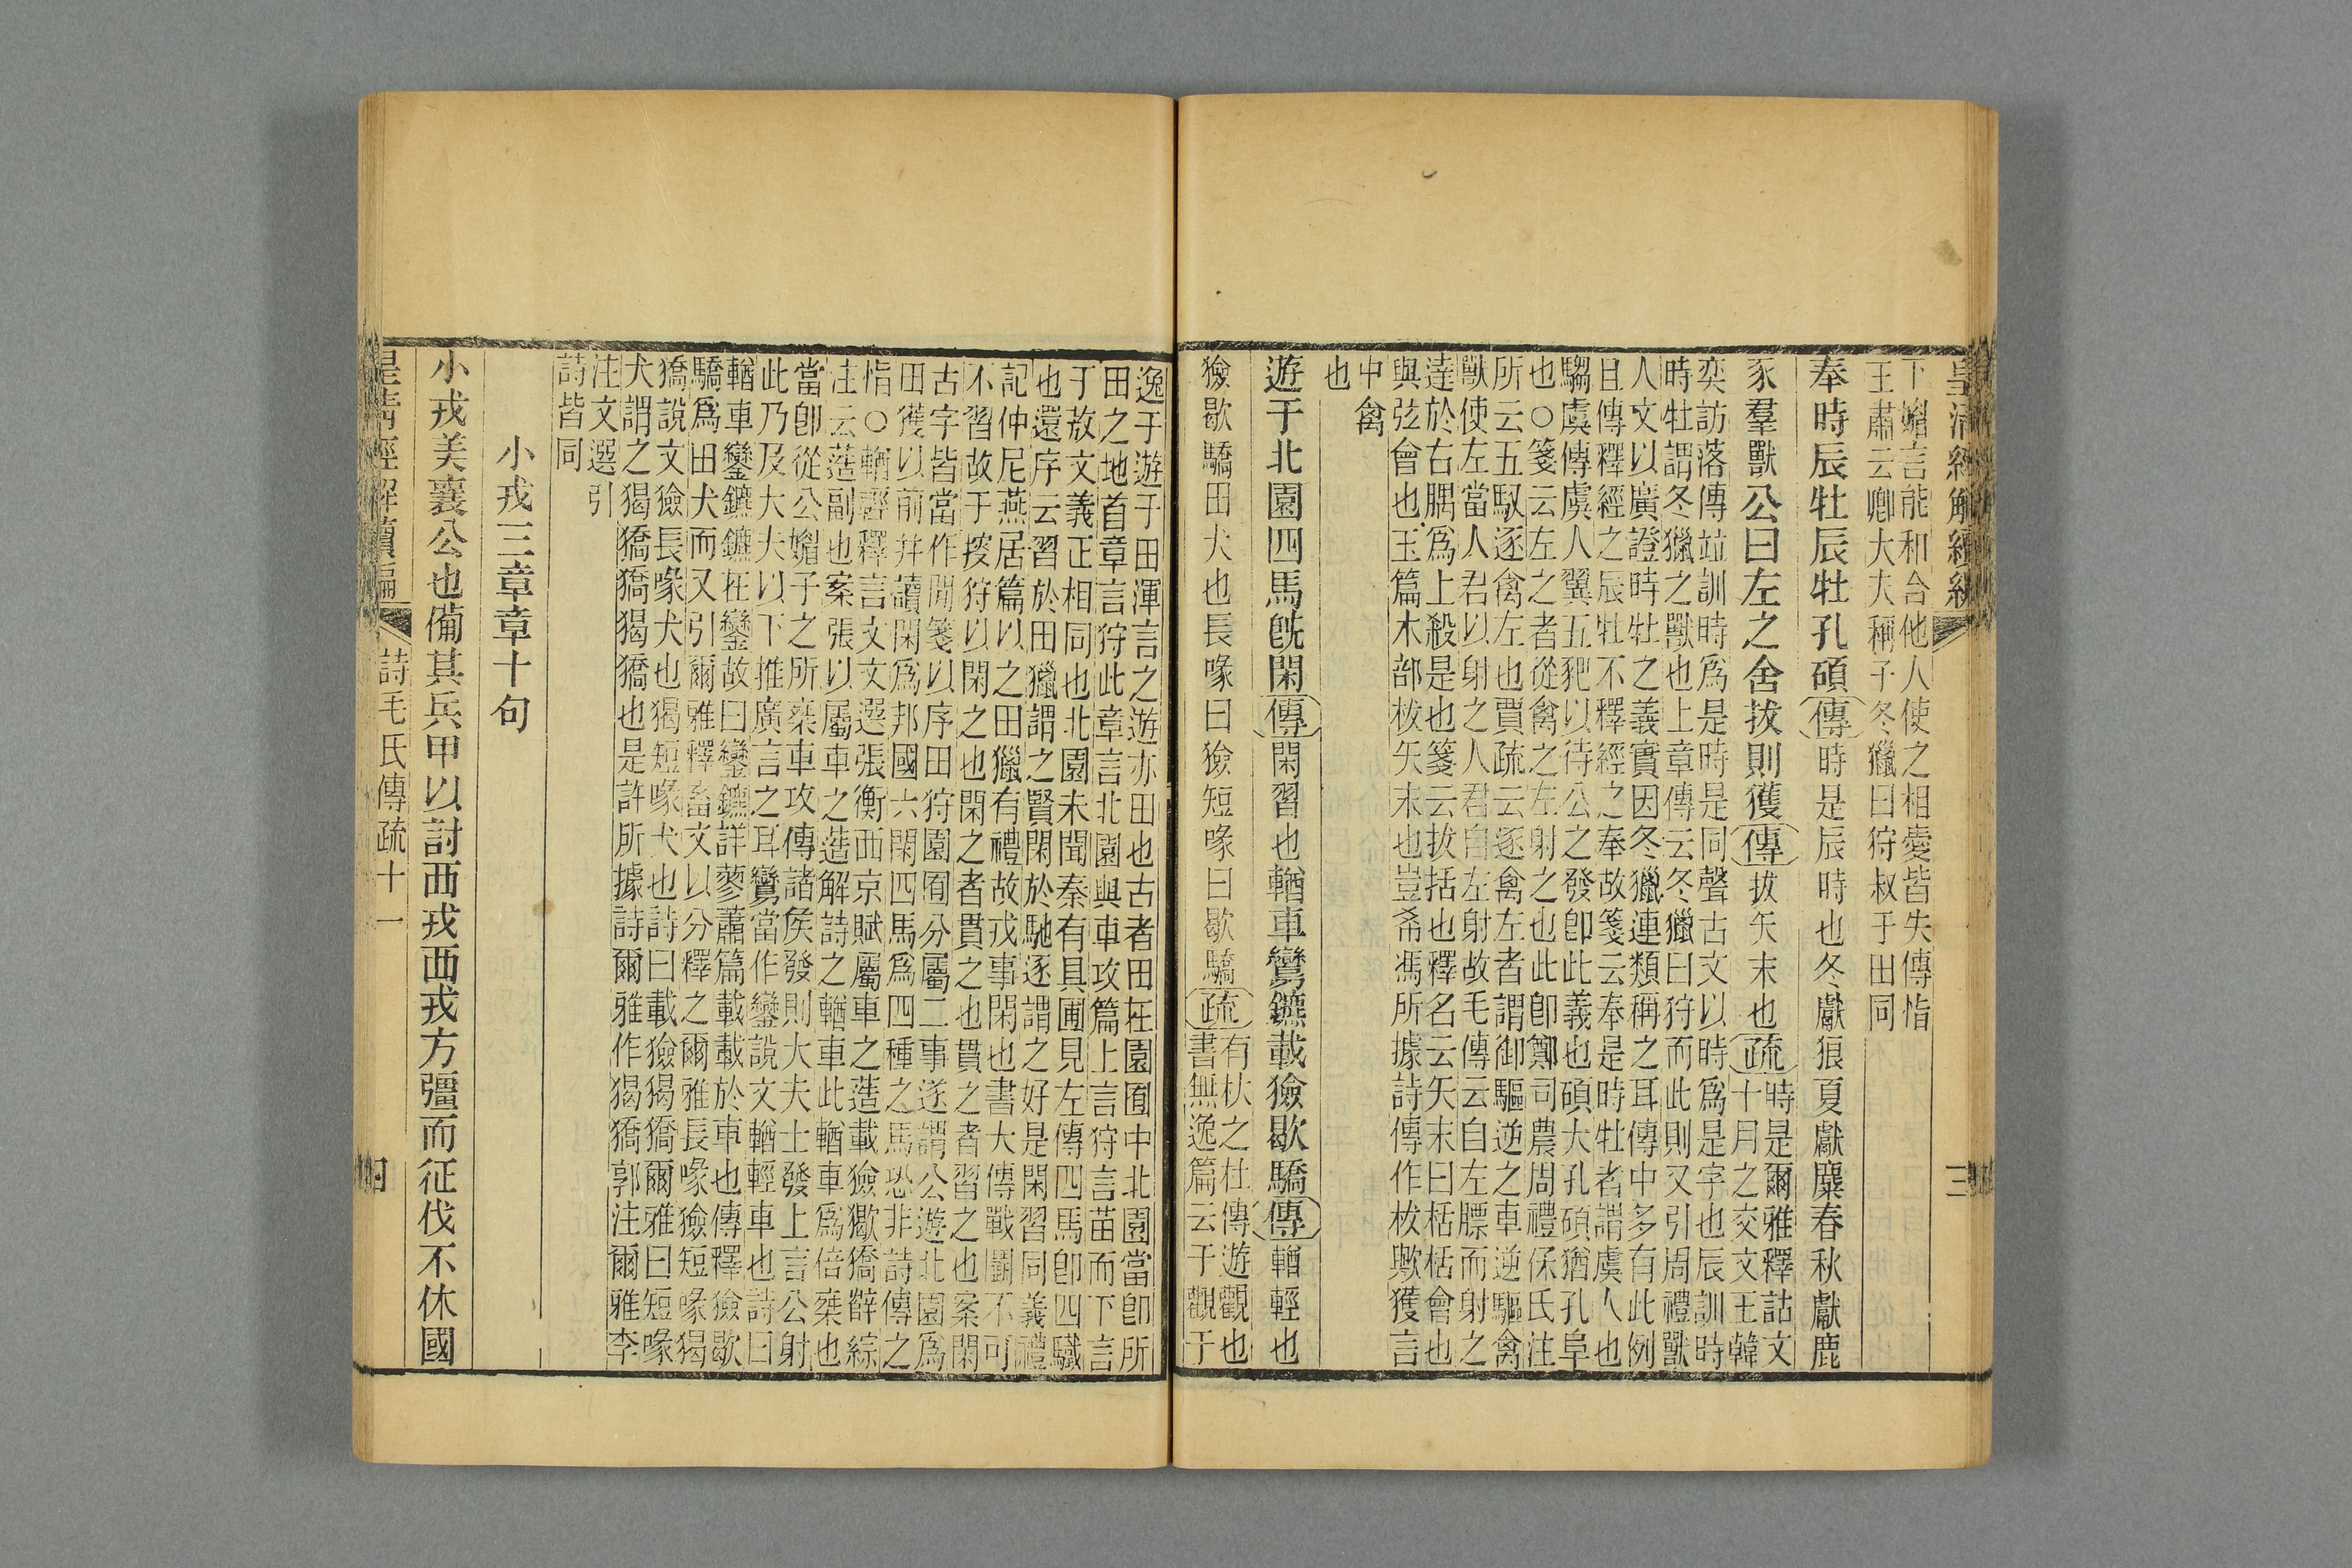 皇清經解續編
三
下媚言能和合他人使之相愛皆失傳恉
王肅云卿大夫稱子冬獵曰狩叔于田同
奉時辰牡辰牡孔碩傳時是辰時也冬獻狼夏獻麋春秋獻鹿
豕羣獸公曰左之舍拔則獲傳拔矢末也疏時是爾雅釋詁文
十月之交文王韓
奕訪落傳竝訓時爲是時是同聲古文以時爲是字也辰訓時
時牡謂冬獵之獸也上章傳云冬獵曰狩而此則又引周禮獸
人文以廣證時牡之義實因冬獵連類稱之耳傳中多有此例
且傳釋經之辰牡不釋經之奉故箋云奉是時牡者謂虞人也
騶虞傳虞人翼五豝以待公之發卽此義也碩大孔碩猶孔阜
也○箋云左之者從禽之左射之也此卽鄭司農周禮保氏注
所云五馭逐禽左也賈疏云逐禽左者謂御驅逆之車逆驅禽
獸使左當人君以射之人君自左射故毛傳云自左膘而射之
達於右腢爲上殺是也箋云拔括也釋名云矢末曰栝栝會也
與弦會也玉篇木部柭矢末也豈希馮所據詩傳作柭歟獲言
中禽
也
遊于北園四馬旣閑傳閑習也輶車鸞鑣載獫歇驕傳輶輕也
獫歇驕田犬也長喙曰獫短喙曰歇驕疏有杕之杜傳遊觀也
書無逸篇云于觀于
逸于遊于田渾言之遊亦田也古者田在園囿中北園當卽所
田之地首章言狩此章言北園與車攻篇上言狩言苗而下言
于敖文義正相同也北園未聞秦有具圃見左傳四馬卽四驖
也還序云習於田獵謂之賢閑於馳逐謂之好是閑習同義禮
記仲尼燕居篇以之田獵有禮故戎事閑也書大傳戰鬬不可
不習故于搜狩以閑之也閑之者貫之也貫之者習之也案閑
古字皆當作閒箋以序田狩園囿分屬二事遂謂公遊北園爲
田獲以前并讀閑爲邦國六閑四馬爲四種之馬恐非詩傳之
恉○輶輕釋言文文選張衡西京賦屬車之簉載獫猲獢薛綜
注云簉副也案張以屬車之簉解詩之輶車此輶車爲倍椉也
當卽從公媚子之所椉車攻傳諸侯發則大夫士發上言公射
此乃及大夫以下推廣言之耳鸞當作鑾說文輶輕車也詩曰
輶車鑾鑣鑣在鑾故曰鑾鑣詳蓼蕭篇載載於車也傳釋獫歇
驕爲田犬而又引爾雅釋畜文以分釋之爾雅長喙獫短喙猲
獢說文獫長喙犬也猲短喙犬也詩曰載獫猲獢爾雅曰短喙
犬謂之猲獢獢猲獢也是許所據詩爾雅作猲獢郭注爾雅李
注文選引
詩皆同
小戎三章章十句
小戎美襄公也備其兵甲以討西戎西戎方彊而征伐不休國
皇清經解續編
詩毛氏傳疏十一
四